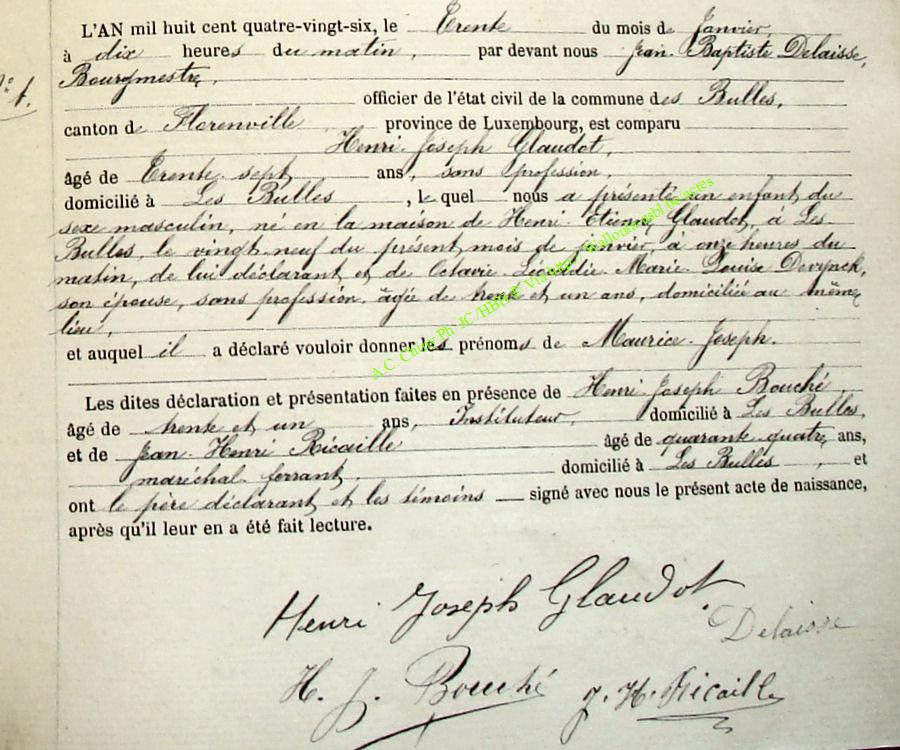 L'AN mil huit cent quatre-vingt-six, le Trente du mois de Janvier,
à dix heures du matin, par devant nous Jean Baptiste Delaisse,
Bourgmestre,
N° 1.
officier de l'état civil de la commune des Bulles,
canton de Florenville province de Luxembourg, est comparu
Henri Joseph Glaudot,
âgé de Trente sept ans, sans profession,
domicilié à Les Bulles, le quel nous a présenté un enfant du
sexe masculin, né en la maison de Henri Etienne Glaudot, à Les
Bulles, le vingt neuf du présent mois de janvier, à onze heures du
matin, de lui déclarant et de Octavie Léocadie Marie Louise Devynck,
son épouse, sans profession, âgée de trente et un ans, domiciliée au même
lieu,
et auquel il a déclaré vouloir donner les prénoms de Maurice Joseph.
Les dites déclaration et présentation faites en présence de Henri Joseph Bouché,
âgé de trente et un ans, Instituteur, domicilié à Les Bulles,
et de Jean Henri Ricaille âgé de quarante quatre ans,
maréchal ferrant, domicilié à Les Bulles, et
ont le père déclarant et les témoins signé avec nous le présent acte de naissance,
après qu'il leur en a été fait lecture.
Henri Joseph Glaudot
Delaisse
H. J. Bouché J. H. Ricaille
A.C. Chiny Ph JC/HB